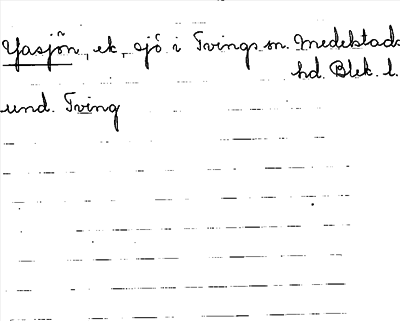 Yasjön, ek., sjö i Tvings sn. Medelstads
hd. Blek. l.
und. Tving